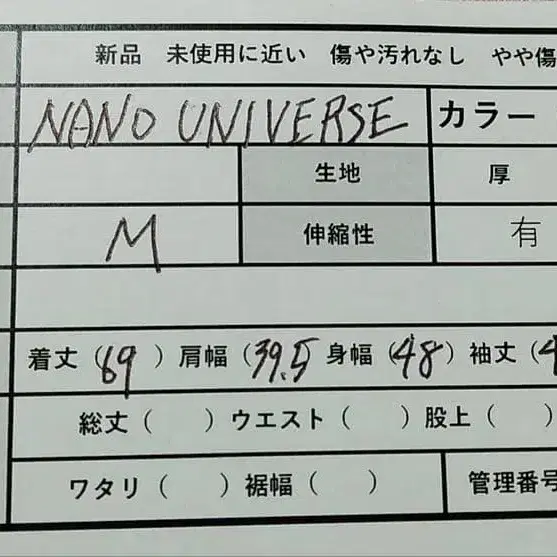 新品 未使用に近い 傷や汚れなし やや傷
NANO UNIVERSE カラー
生地 厚
M 伸縮性 有
着丈（69）肩幅（39.5）身幅（48）袖丈（4
総丈（ ）ウエスト（ ）股上（ ）
ワタリ（ ）裾幅（ ） 管理番号